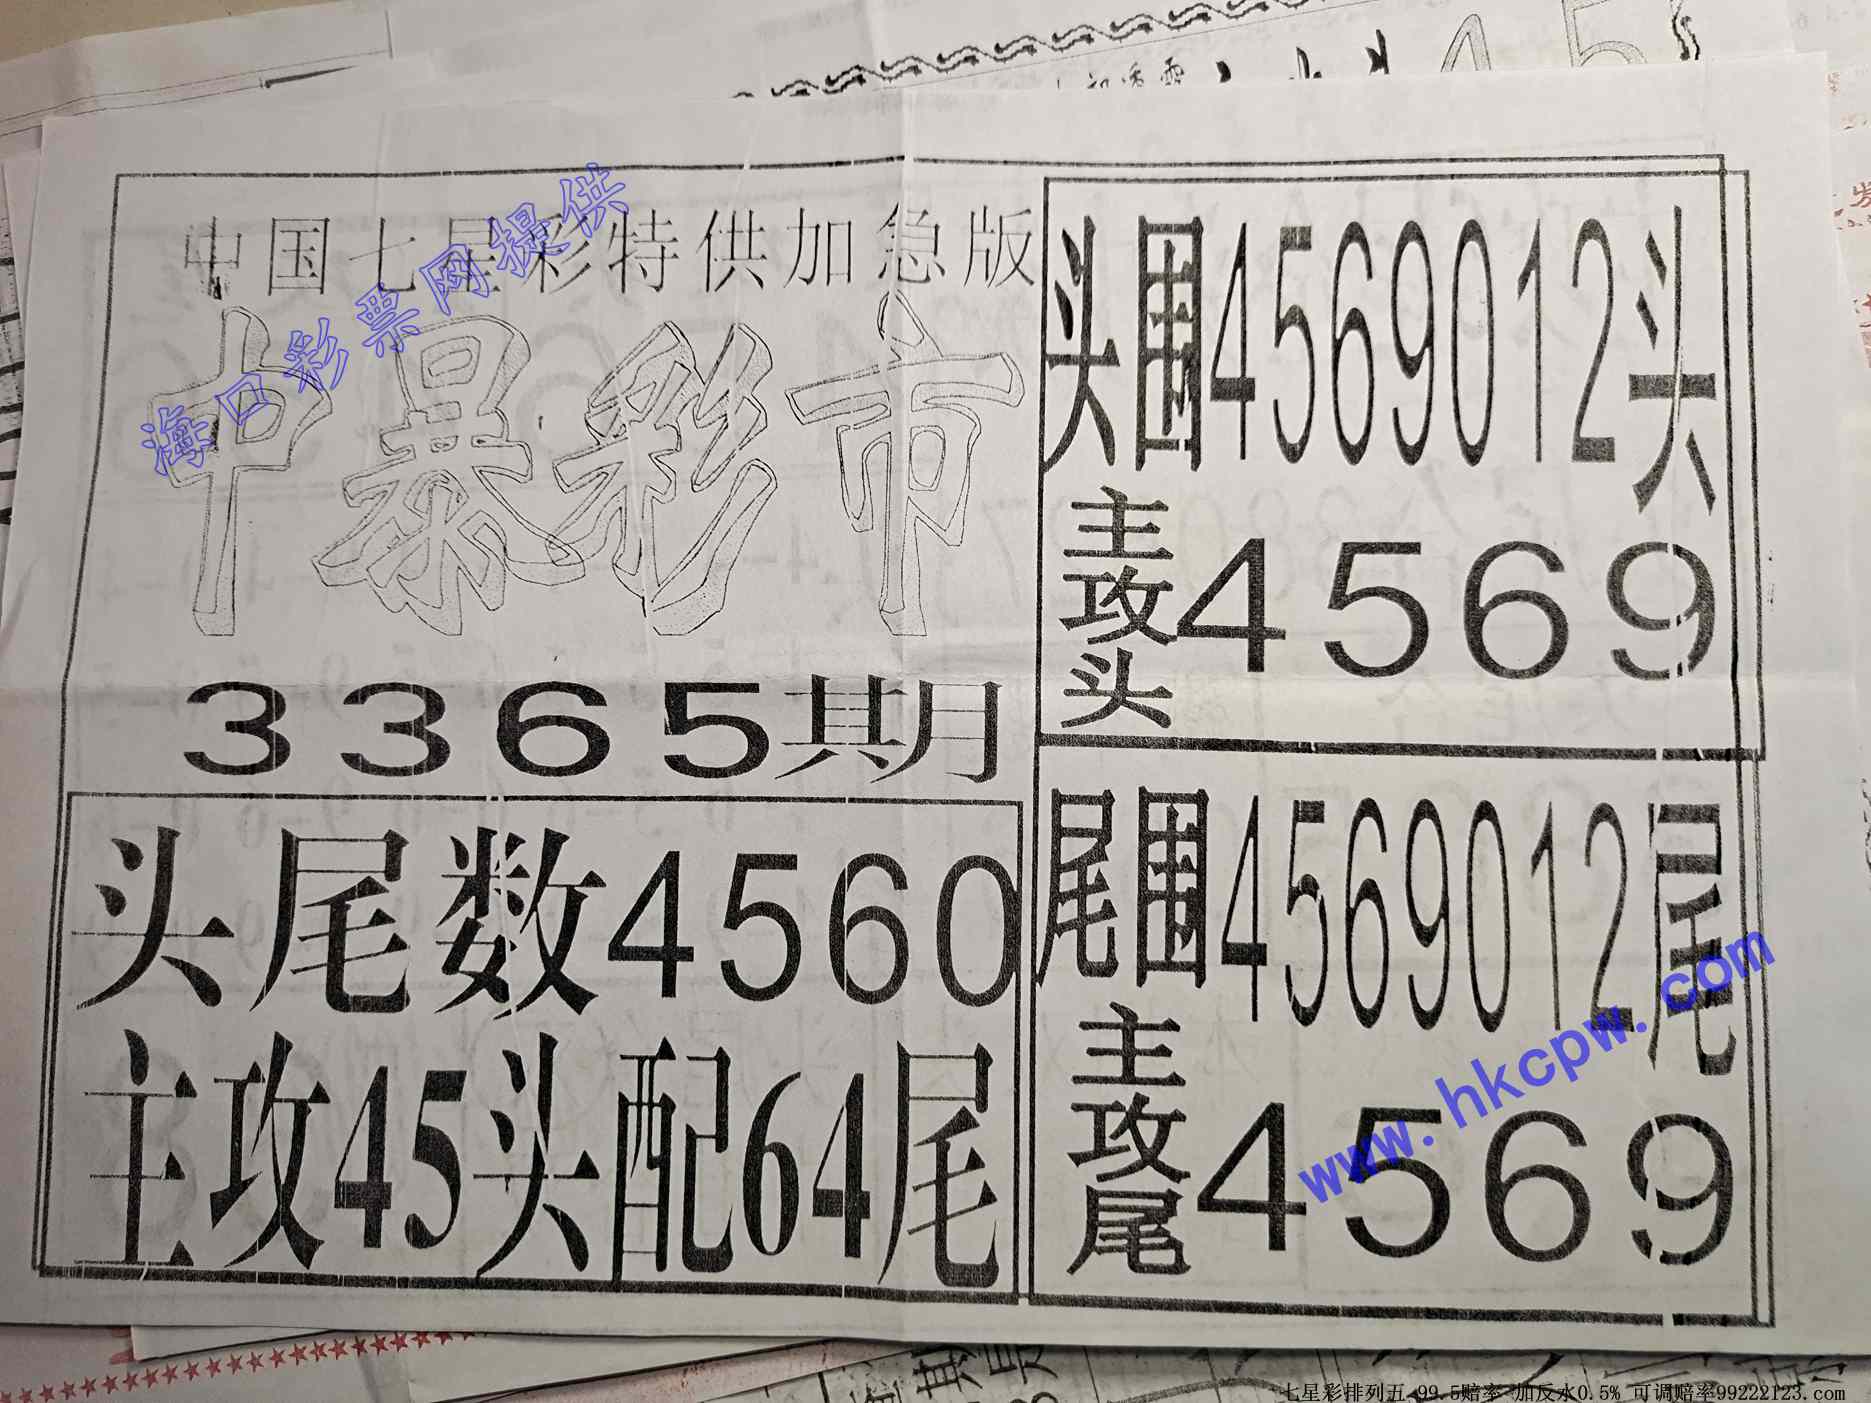 中国七星彩特供加急版
海口彩票网提供
中暴彩市
3365期
头尾数4560
主攻45头配64尾
头围4569012头
主攻头4569
尾围4569012尾
主攻尾4569
www.hkcpw.com
七星彩排列五 99.5赔率 加反水0.5% 可调赔率99222123.com